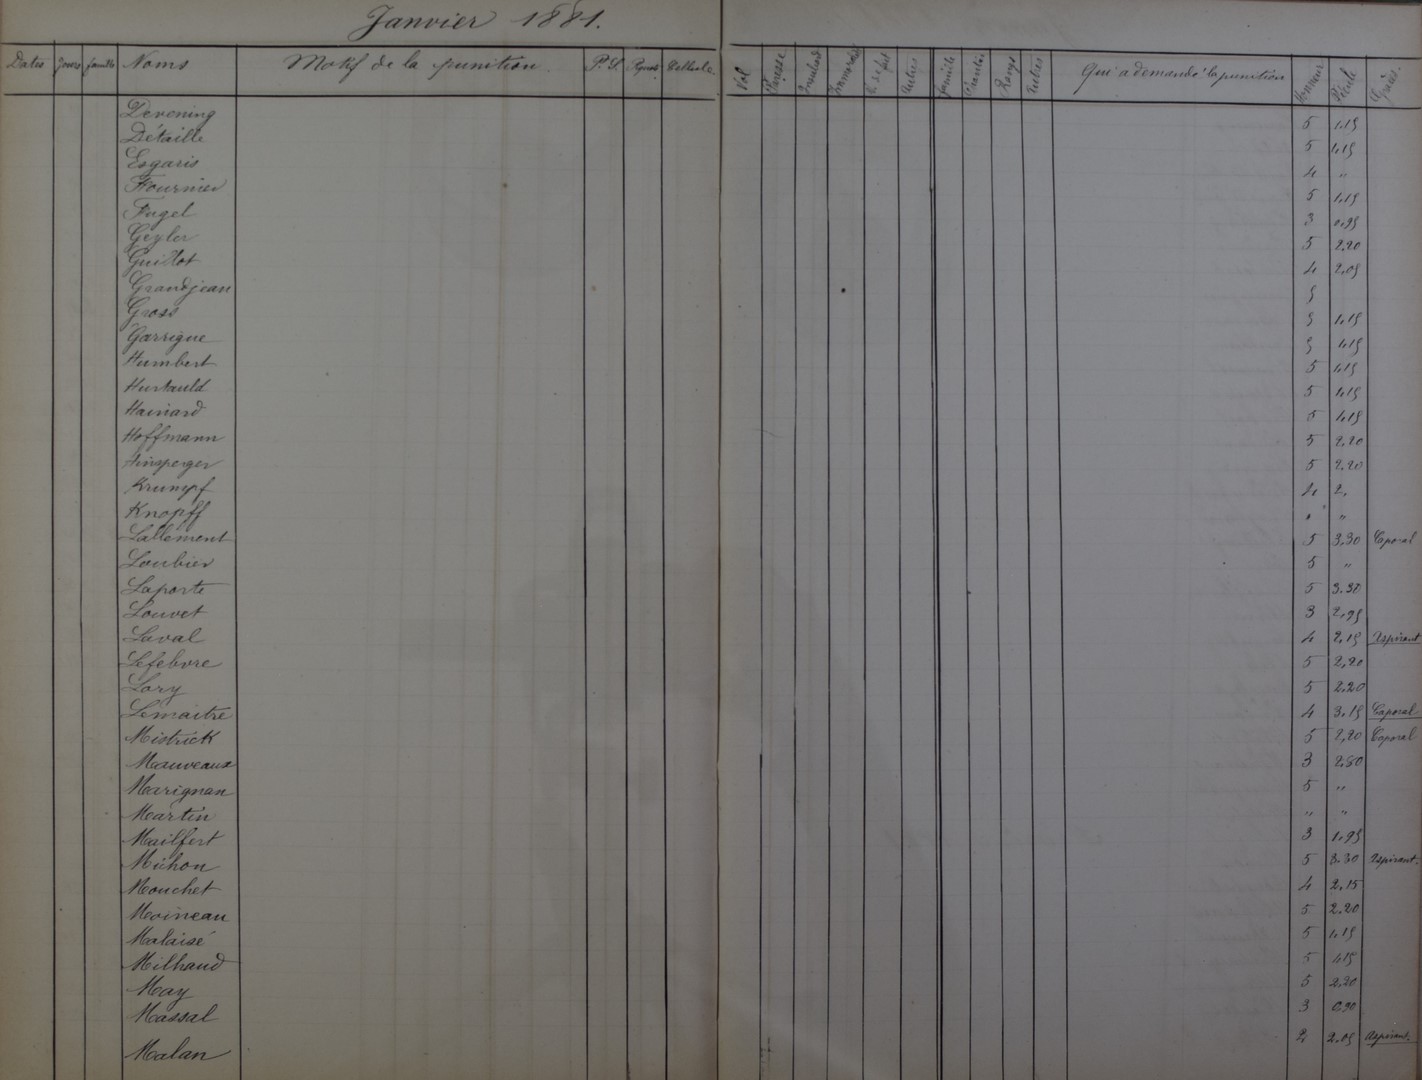 Janvier 1881.
Dates Jours famille Noms Motif de la punition. P. S. Cellule. Vol Paresse Autres Famille Rangs Autres Qui a demandé la punition Honneur
Devening 5 1.15
Détaille 5 1.15
Esgaris 4 "
Fournier 5 1.15
Fugel 3 0.95
Geyler 5 2.20
Guillot 4 2.05
Grandjean 5
Gross 5 1.15
Garrigue 5 1.15
Humbert 5 1.15
Hurtauld 5 1.15
Hainard 5 1.15
Hoffmann 5 2.20
Hinsperger 5 2.20
Krumpf 4 2.
Knopff " "
Lallement 5 3.30 Caporal
Loubier 5 "
Laporte 5 3.30
Louvet 3 2.95
Laval 4 2.15 Aspirant
Lefebvre 5 2.20
Lory 5 2.20
Lemaitre 4 3.15 Caporal
Mistrick 5 2.20 Caporal
Mauveaux 3 2.80
Marignan 5 "
Martin " "
Mailfert 3 1.95
Michon 5 3.30 Aspirant.
Mouchet 4 2.15
Moineau 5 2.20
Malaisé 5 1.15
Milhaud 5 1.15
May 5 2.20
Massal 3 0.90
Malan 2.05 Aspirant.